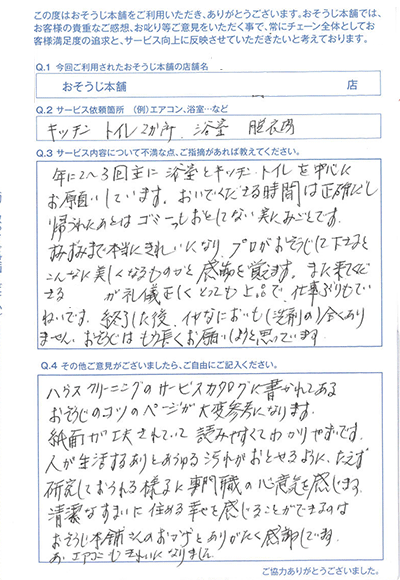 この度はおそうじ本舗をご利用いただき、ありがとうございます。おそうじ本舗では、
お客様の貴重なご感想、お叱り等ご意見をいただく事で、常にチェーン全体としてお
客様満足度の追求と、サービス向上に反映させていただきたいと考えております。
Q.1 今回ご利用されたおそうじ本舗の店舗名
おそうじ本舗 店
Q.2 サービス依頼箇所 (例)エアコン、浴室…など
キッチン トイレ2か所 浴室 脱衣場
Q.3 サービス内容について不満な点、ご指摘があれば教えてください。
年に2〜3回主に浴室とキッチン、トイレを中心に
お願いしています。おいでくださる時間は正確だし
帰られたあとはゴミ一つもおとしてない実にみごとです。
すみずみまで本当にきれいになり、プロがおそうじして下さると
こんなに美しくなるものかと感動を覚えます。また来てくだ
さる が礼儀正しくとっても上品で、仕事ぶりもてい
ねいです。終了した後、イヤなにおいも(洗剤の)全くあり
ません。おそらくはもう長くお願いしようと思っています。
Q.4 その他ご意見がございましたら、ご自由にご記入ください。
ハウスクリーニングのサービスカタログに書かれてある
おそうじのコツのページが大変参考になります。
紙面が工夫されていて読みやすくてわかりやすいです。
人が生活するありとあらゆる汚れがおとせるように、たえず
研究しておられる様子に専門職の心意気を感じます。
清潔なすまいに住める幸せを感じることができるのは
おそうじ本舗さんのおかげとありがたく感謝しています。
お、エアコンもきれいになりました。
ご協力ありがとうございました。